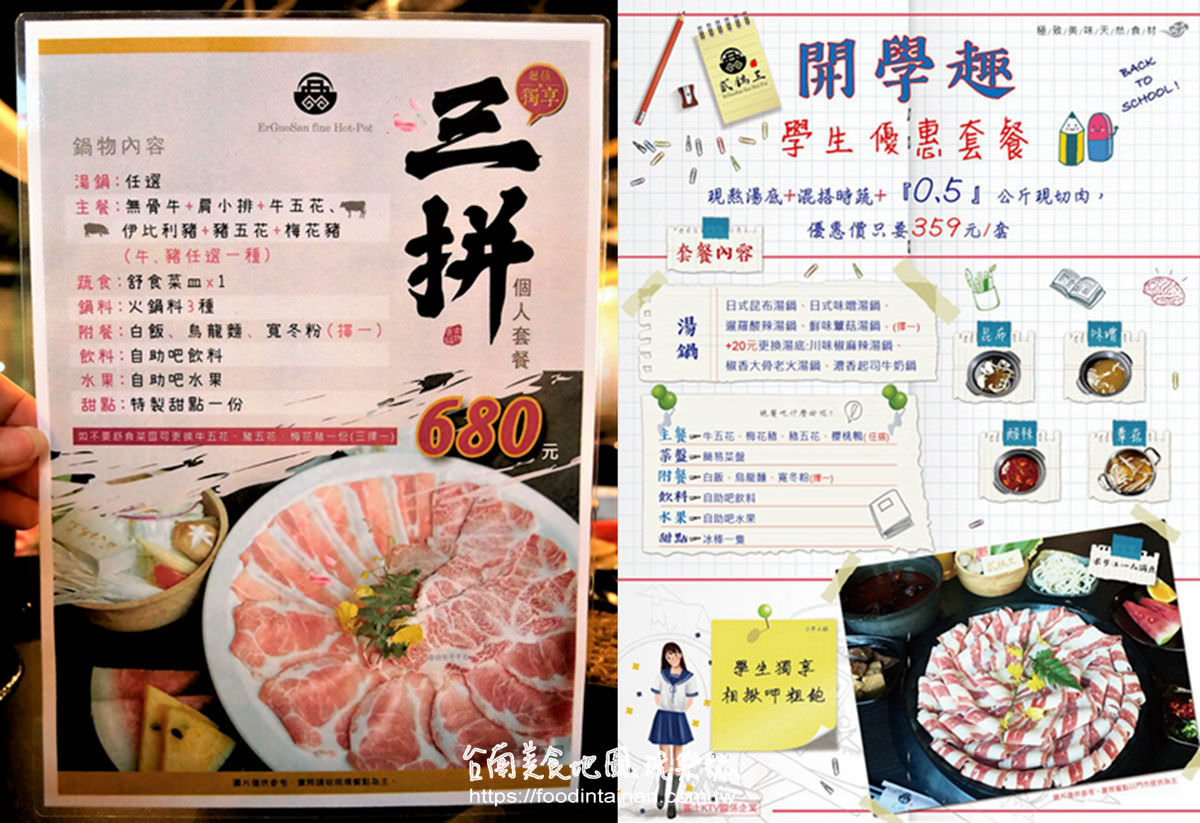 超值
獨享
三拼
個人套餐
680元
ErGuoSan fine Hot-Pot
鍋物內容
湯鍋：任選
主餐：無骨牛+肩小排+牛五花、
伊比利豬+豬五花+梅花豬
(牛、豬任選一種)
蔬食：舒食菜皿x1
鍋料：火鍋料3種
附餐：白飯、烏龍麵、寬冬粉(擇一)
飲料：自助吧飲料
水果：自助吧水果
甜點：特製甜點一份
如不要舒食菜皿可更換牛五花、豬五花、梅花豬一份(三擇一)
極/致/美/味/天/然/食/材
貳鍋三
ErGuoSan fine Hot-Pot
開學趣
BACK
TO
SCHOOL!
學生優惠套餐
現熬湯底+混搭時蔬+『0.5』公斤現切肉，
優惠價只要359元/套
套餐內容
湯鍋
日式昆布湯鍋、日式味噌湯鍋、
暹羅酸辣湯鍋、鮮味蕈菇湯鍋、(擇一)
+20元更換湯底:川味椒麻辣湯鍋、
椒香大骨老火湯鍋、濃香起司牛奶鍋
昆布
味噌
酸辣
蕈菇
晚餐吃什麼好呢!
主餐 牛五花、梅花豬、豬五花、櫻桃鴨(任選)
菜盤 簡易菜盤
附餐 白飯、烏龍麵、寬冬粉(擇一)
飲料 自助吧飲料
水果 自助吧水果
甜點 冰棒一隻
ボリューム満点
學生獨享
相揪呷粗飽
圖片僅供參考，實際請依現場餐點為主。
台南美食地圖
https://foodintainan.com.tw